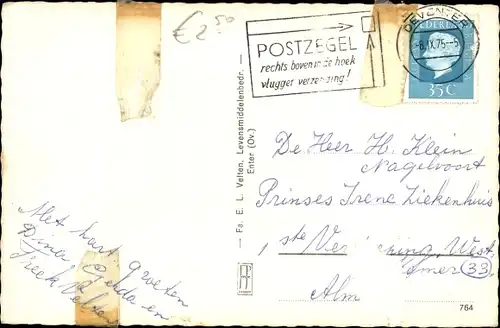 € 2.50
POSTZEGEL
rechts boven in de hoek
vlugger verzending!
DEVENTER
-8.IX.75-5
NEDERLAND
35 C
Fa. E. L. Velten, Levensmiddelenbedr.
Enter (Ov.)
De Heer H. Klein
Nagelvoort
Prinses Irene Ziekenhuis
1ste West
(33)
Alm
Met hart. groeten
Dina Gerda en
764